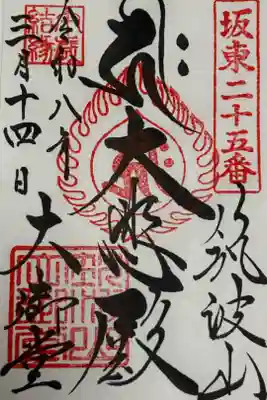 坂東二十五番
筑波山
大悲殿
令和八年
三月十四日
大御堂
結縁